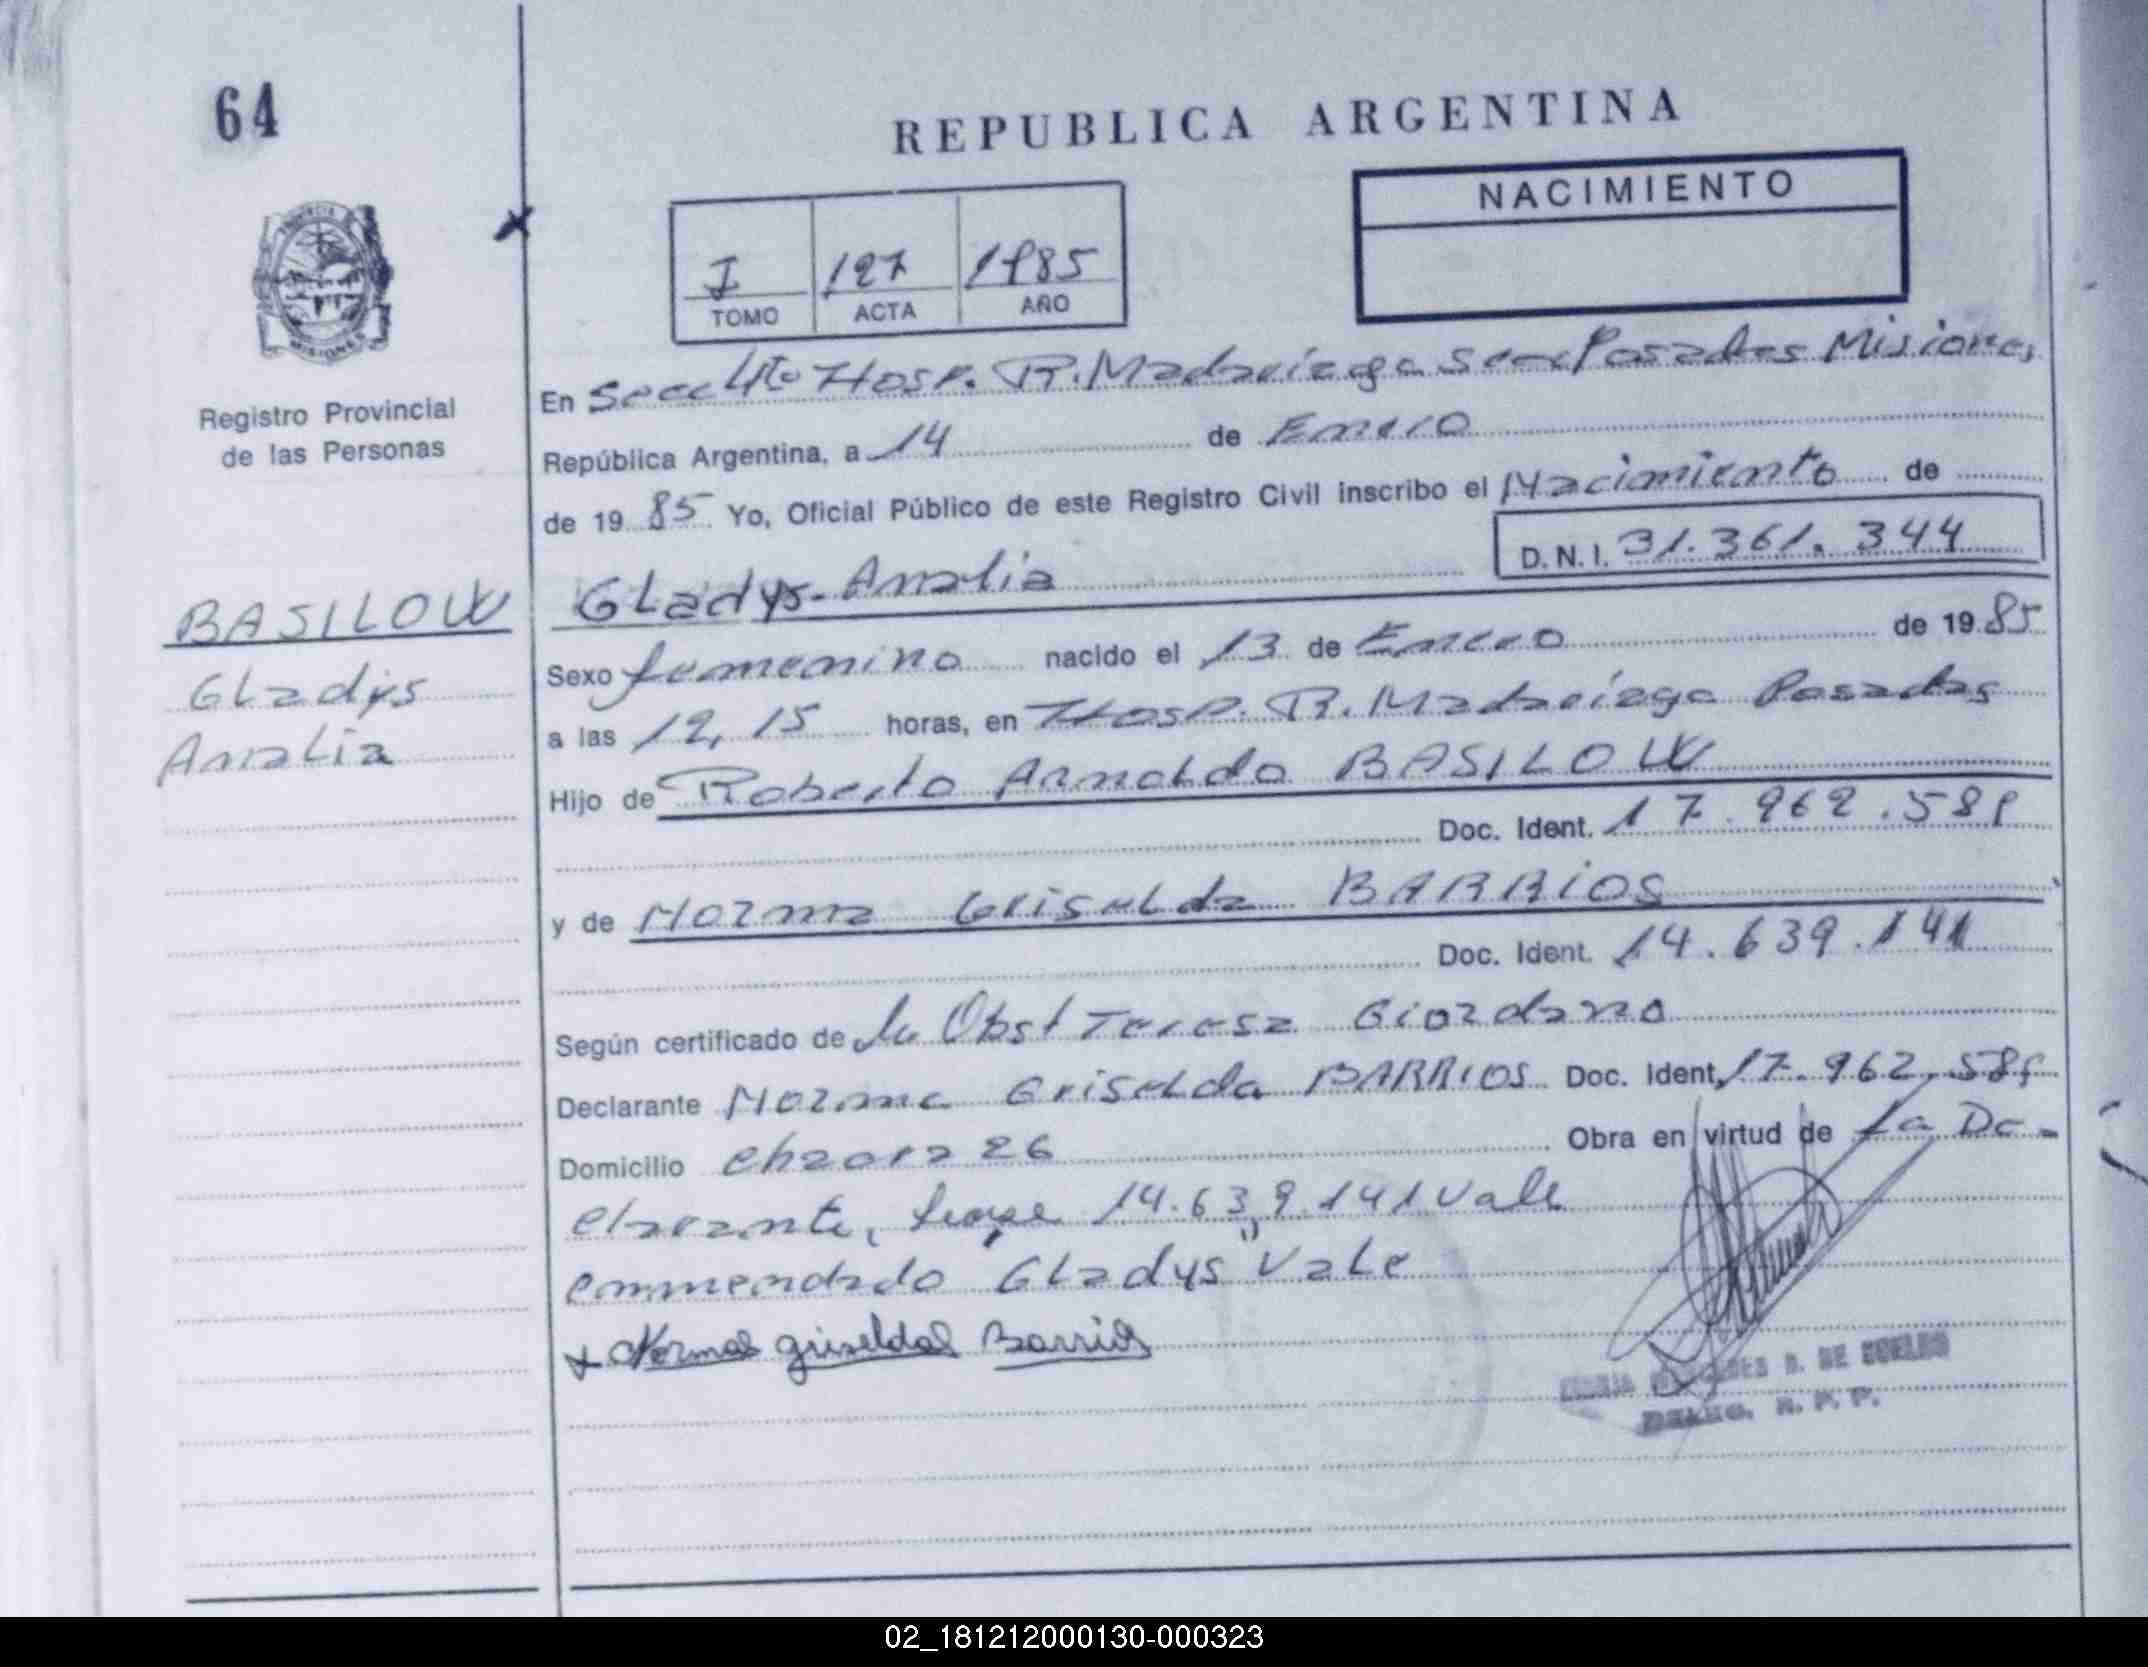 64
REPUBLICA ARGENTINA
NACIMIENTO
I 127 1985
TOMO ACTA AÑO
PROVINCIA DE
MISIONES
Registro Provincial
de las Personas
En Secc 4to Hosp. R. Madariaga Posadas Misiones
República Argentina, a 14 de Enero
de 1985 Yo, Oficial Público de este Registro Civil inscribo el Nacimiento de
D.N.I. 31.361.344
BASILOW Gladys Analia
Gladys
Analia
Sexo femenino nacido el 13 de Enero de 1985
a las 12,15 horas, en Hosp. R. Madariaga Posadas
Hijo de Roberto Arnoldo BASILOW
Doc. Ident. 17.962.589
y de Norma Griselda BARRIOS
Doc. Ident. 14.639.141
Según certificado de la Obst Teresa Giordano
Declarante Norma Griselda BARRIOS Doc. Ident. 17.962.589
Domicilio chacra 26 Obra en virtud de la De-
clarante, 14.639.141 Vale
enmendado Gladys Vale
Norma griselda Barrios
DE CUELHO
R. P. P.
02_181212000130-000323